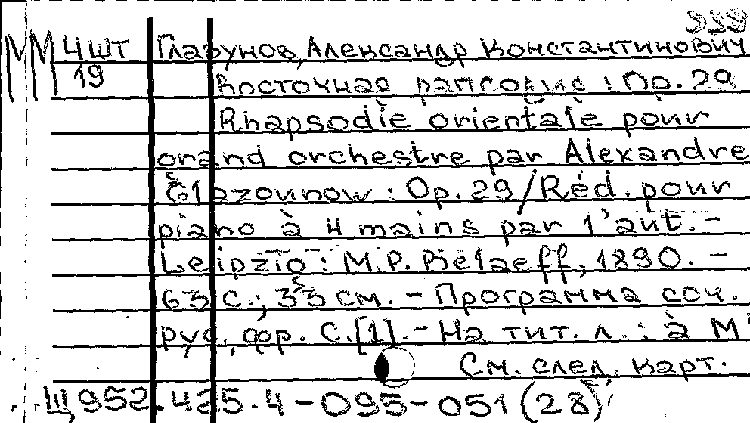 939
ММ 4шт Глазунов, Александр Константинович
19 Восточная рапсодия : Op. 29
Rhapsodie orientale pour
grand orchestre par Alexandre
Glazounow : Op. 29/Réd. pour
piano à 4 mains par l'aut. –
Leipzig : M.P. Belaeff, 1890. –
63 с.; 33 см. – Программа соч.
рус., фр. С. [1]. – На тит. л. : à M
См. след. карт.
Щ952.425.4-095-051 (28)